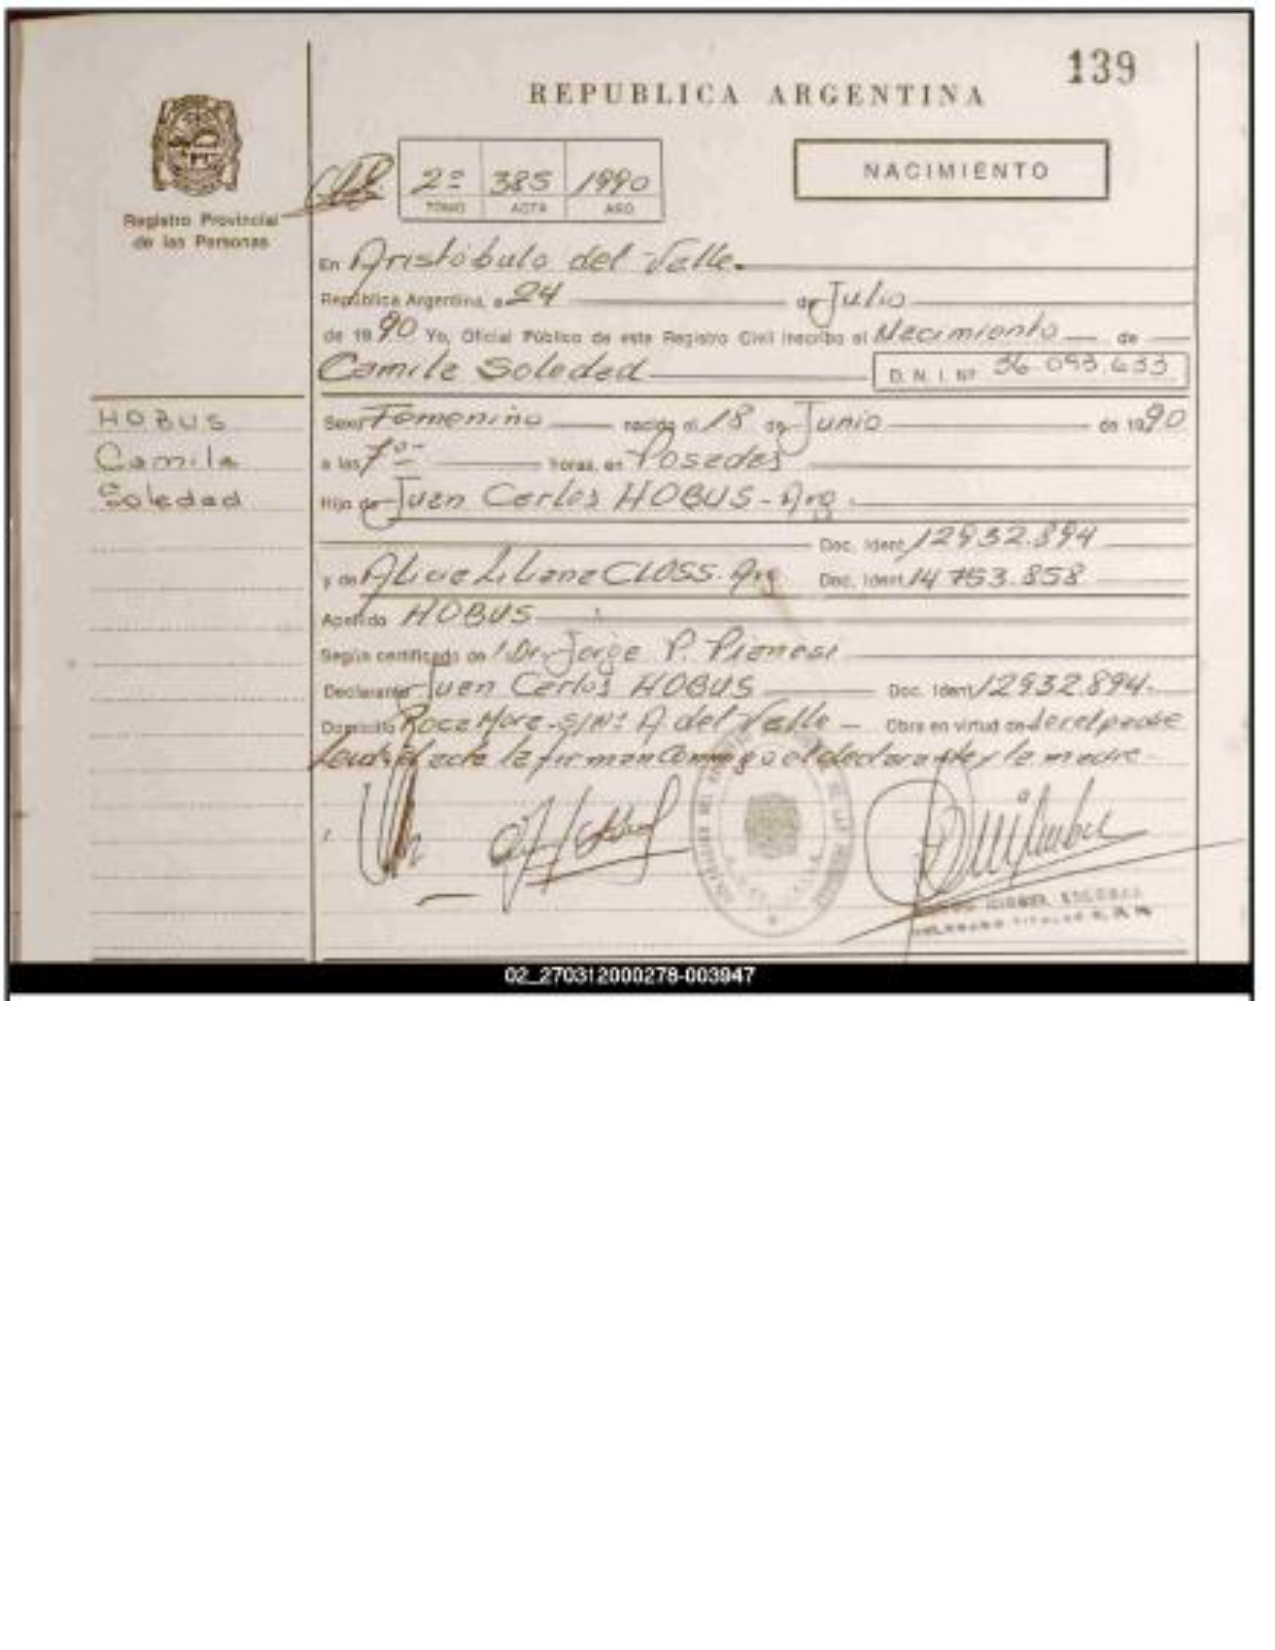 139
REPUBLICA ARGENTINA
NACIMIENTO
2º 385 1990
TOMO ACTA AÑO
Registro Provincial
de las Personas
En Aristóbulo del Valle.
República Argentina, a 24 de Julio
de 1990 Yo, Oficial Público de este Registro Civil inscribo el Nacimiento de
Camila Soledad D. N. I. Nº 36.093.633
HOBUS
Camila
Soledad
Sexo Femenino nacido el 18 de Junio de 1990
a las 7 horas, en Posadas
Hijo de Juan Carlos HOBUS - Arg.
Doc. Ident. 12932.894
y de Alicia Liliana CLOSS. Arg Doc. Ident. 14753.858
Apellido HOBUS
Según certificado de Dr. Jorge P. Pianesi
Declarante Juan Carlos HOBUS Doc. Ident. 12932894.
Domicilio Roca Mora - S/Nº A. del Valle - Obra en virtud de ser el padre
el acta la firman conmigo el declarante y la madre
02_270312000278-003947